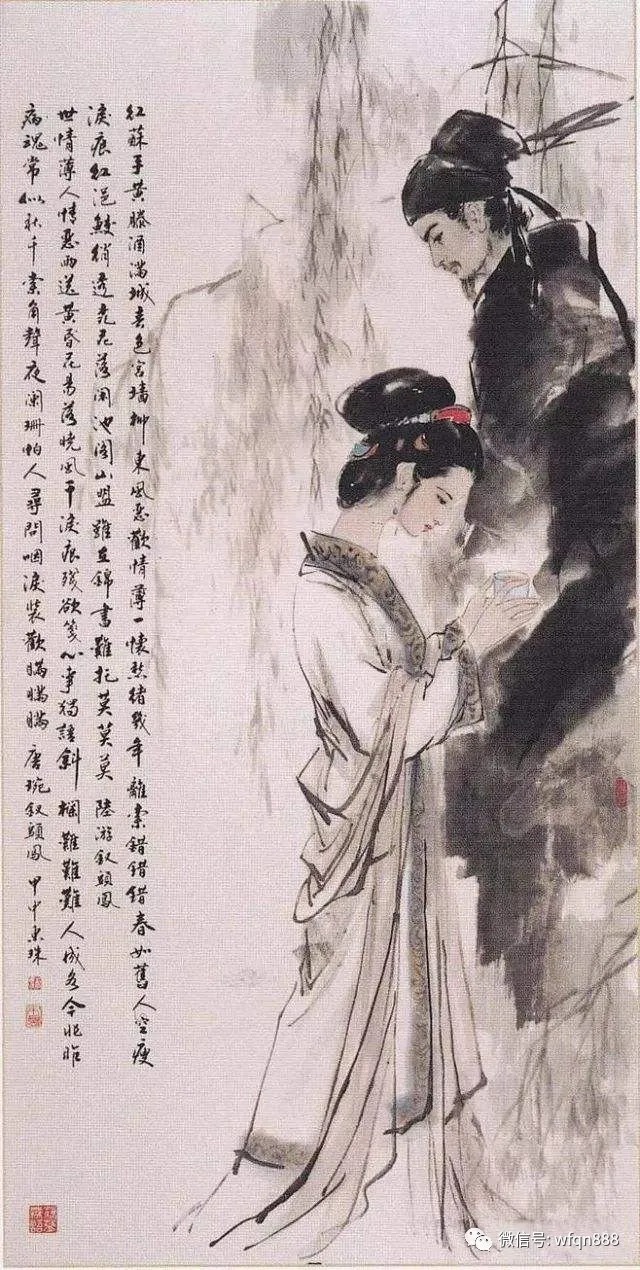 紅酥手黃縢酒滿城春色宮墻柳東風惡歡情薄一懷愁緒幾年離索錯錯錯春如舊人空瘦
淚痕紅浥鮫綃透桃花落閑池閣山盟雖在錦書難托莫莫莫 陸游釵頭鳳
世情薄人情惡雨送黃昏花易落曉風干淚痕殘欲箋心事獨語斜欄難難難人成各今非昨
病魂常似秋千索角聲夜闌珊怕人尋問咽淚裝歡瞞瞞瞞 唐琬釵頭鳳 甲申東珠
微信号: wfqn888